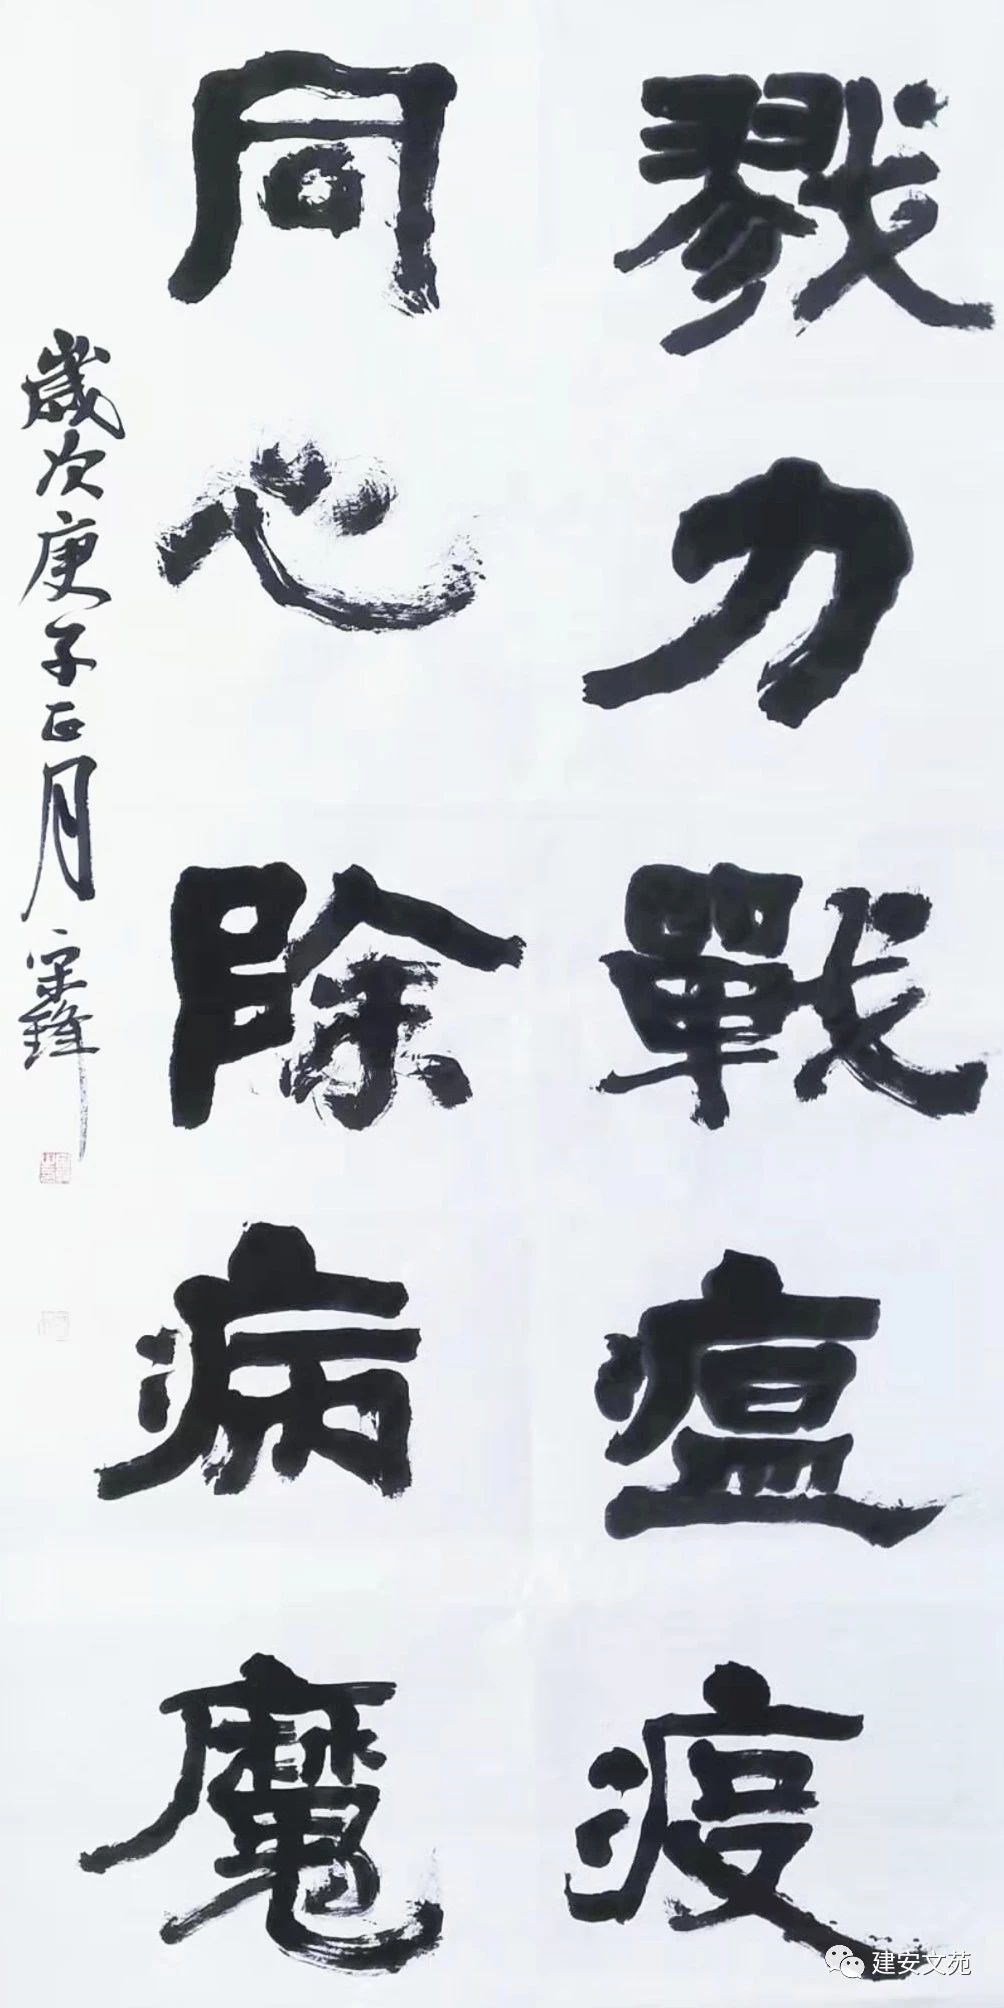 戮力戰瘟疫
同心除病魔
歲次庚子正月宋鋒
建安文苑